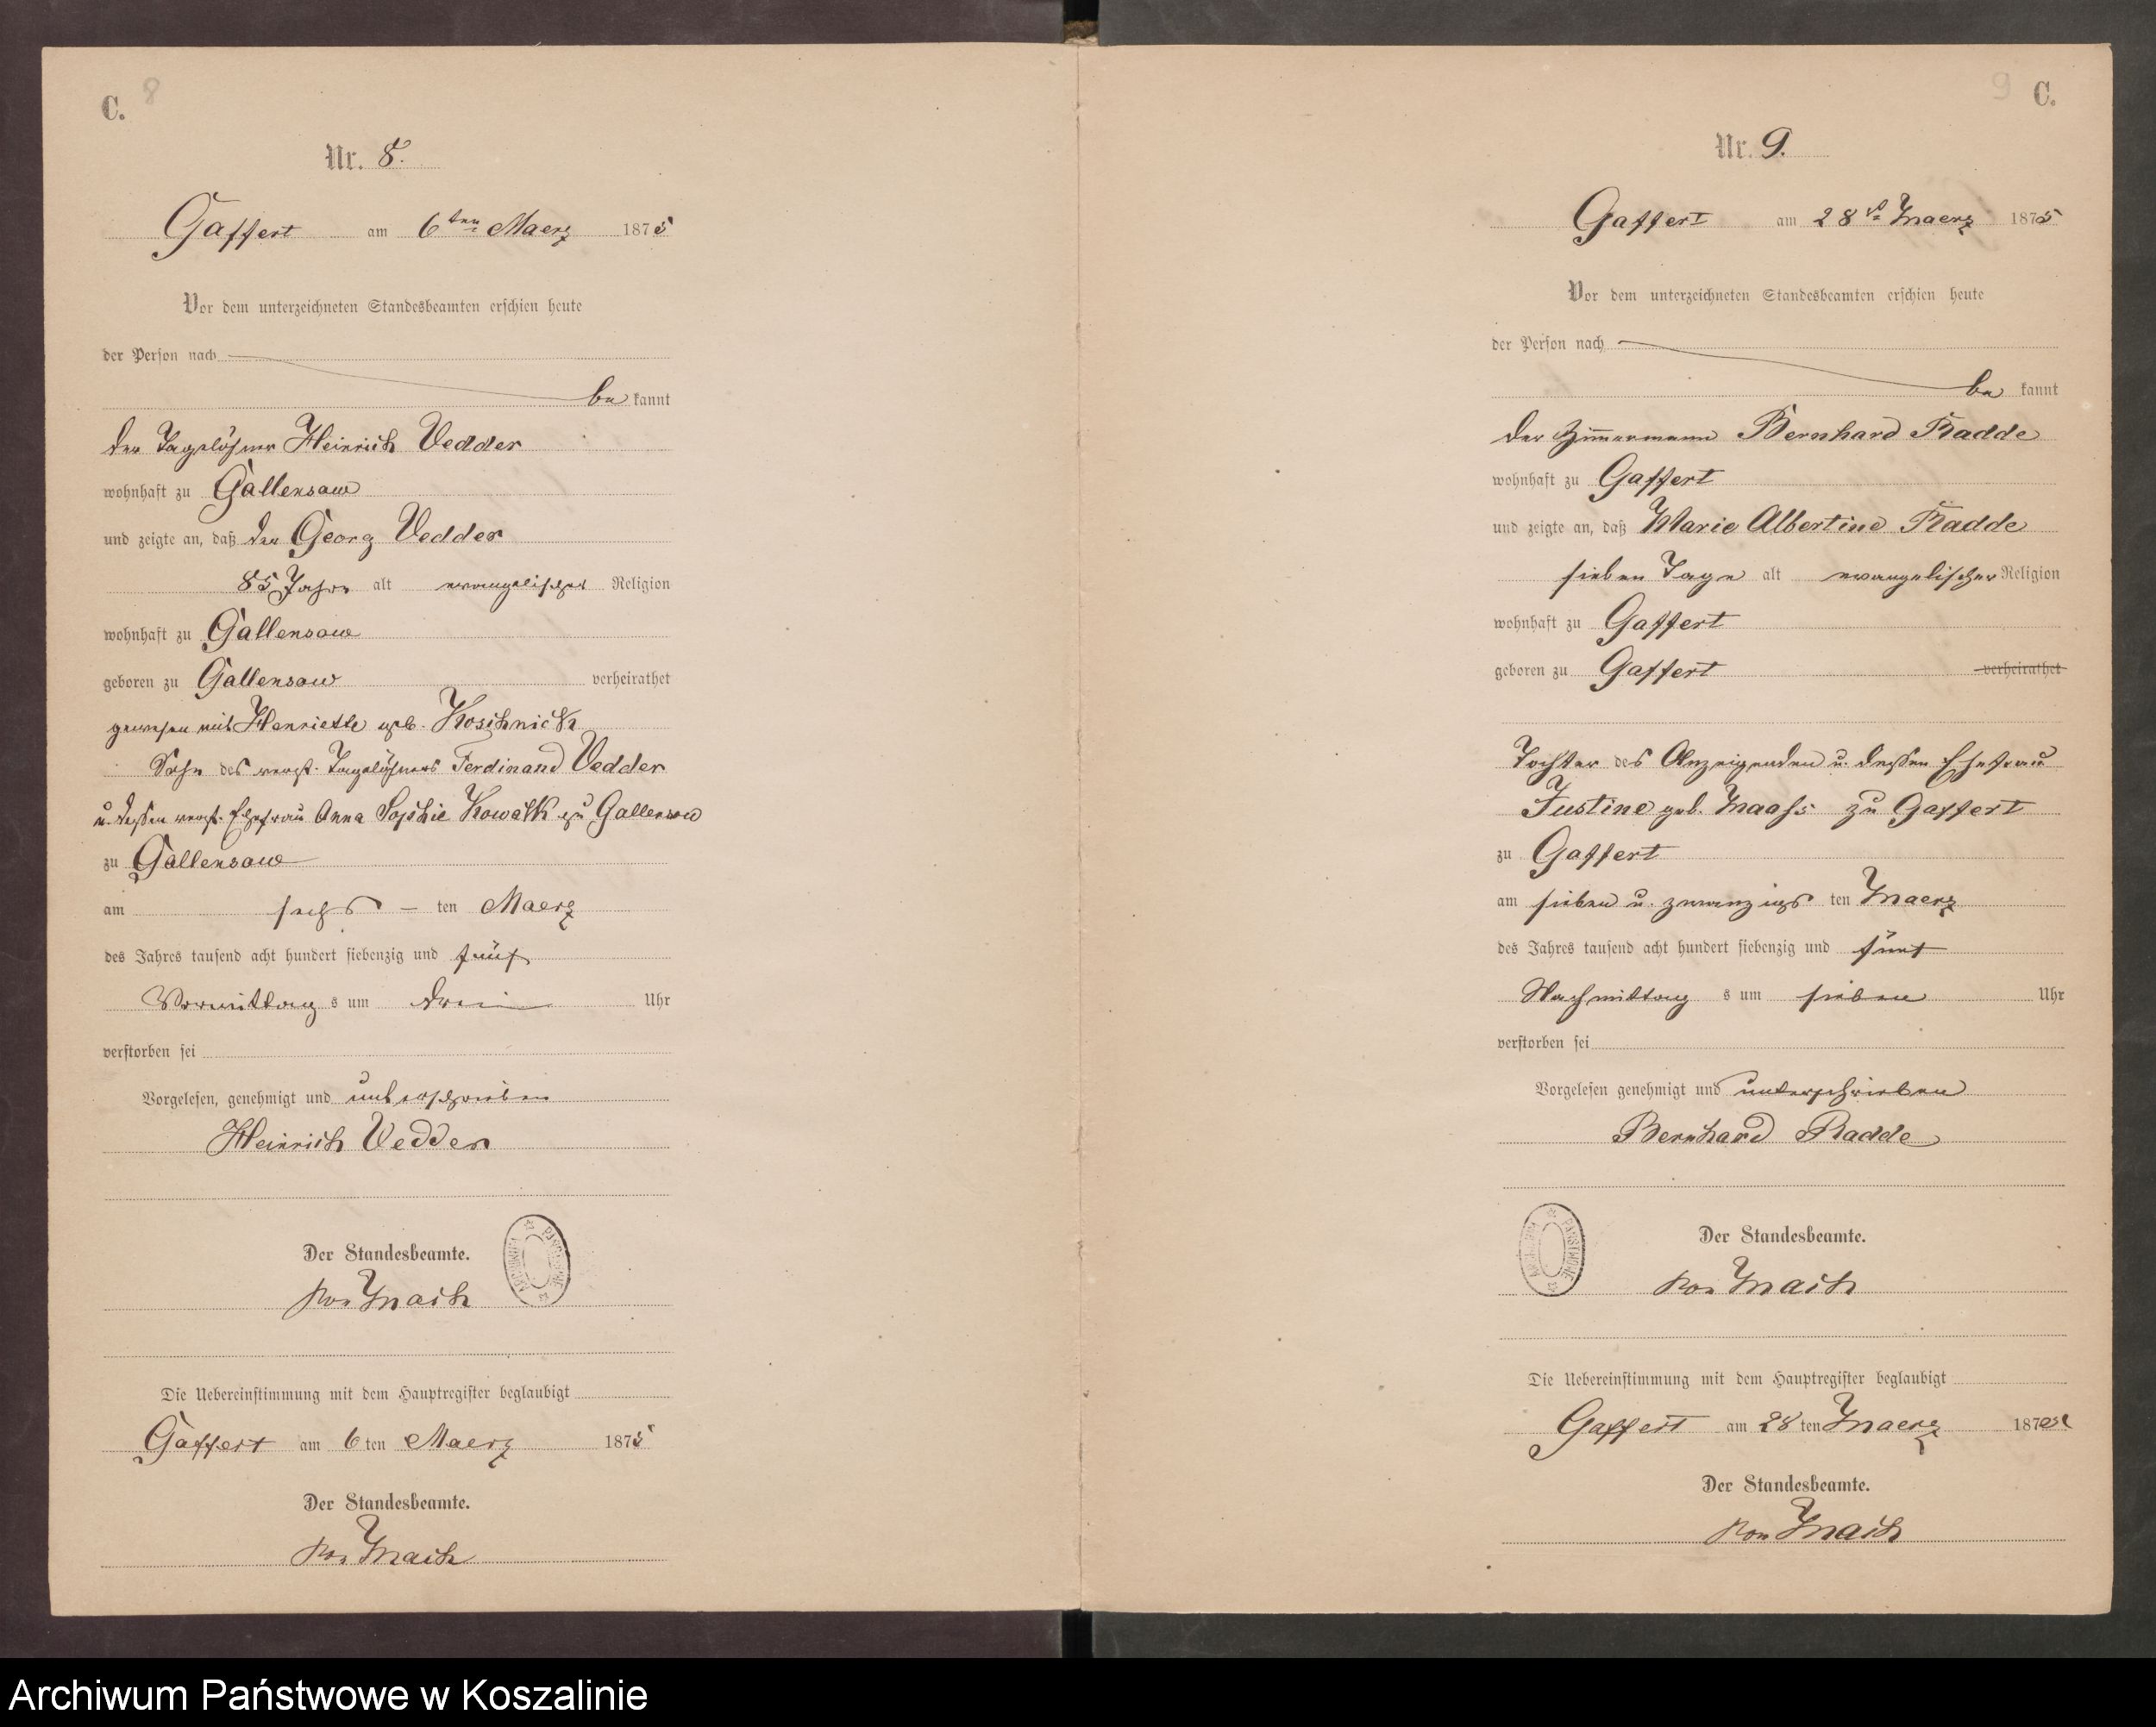 C. 8
Nr. 8.
Gaffert am 6ten Maerz 1875
Vor dem unterzeichneten Standesbeamten erschien heute
der Person nach
be kannt
der Tagelöhner Heinrich Vedder
wohnhaft zu Gallensow
und zeigte an, daß der Georg Vedder
85 Jahre alt evangelischer Religion
wohnhaft zu Gallensow
geboren zu Gallensow verheirathet
gewesen mit Henriette geb. Koschnick
Sohn des verst. Tagelöhners Ferdinand Vedder
u. dessen verst. Ehefrau Anna Sophie Kowalk zu Gallensow
zu Gallensow
am sechs – ten Maerz
des Jahres tausend acht hundert siebenzig und fünf
Vormittag s um drei Uhr
verstorben sei
Vorgelesen, genehmigt und unterschrieben
Heinrich Vedder
Der Standesbeamte.
von Mach
Die Uebereinstimmung mit dem Hauptregister beglaubigt
Gaffert am 6 ten Maerz 1875
Der Standesbeamte.
von Mach
9 C.
Nr. 9.
Gaffert am 28t Maerz 1875
Vor dem unterzeichneten Standesbeamten erschien heute
der Person nach
be kannt
der Zimmermann Bernhard Radde
wohnhaft zu Gaffert
und zeigte an, daß Marie Albertine Radde
sieben Tage alt evangelischer Religion
wohnhaft zu Gaffert
geboren zu Gaffert verheirathet
Tochter des Anzeigenden u. dessen Ehefrau
Justine geb. Maass zu Gaffert
zu Gaffert
am sieben u. zwanzigs ten Maerz
des Jahres tausend acht hundert siebenzig und fünf
Nachmittag s um sieben Uhr
verstorben sei
Vorgelesen genehmigt und unterschrieben
Bernhard Radde
Der Standesbeamte.
von Mach
Die Uebereinstimmung mit dem Hauptregister beglaubigt
Gaffert am 28 ten Maerz 187
Der Standesbeamte.
von Mach
Archiwum Państwowe w Koszalinie